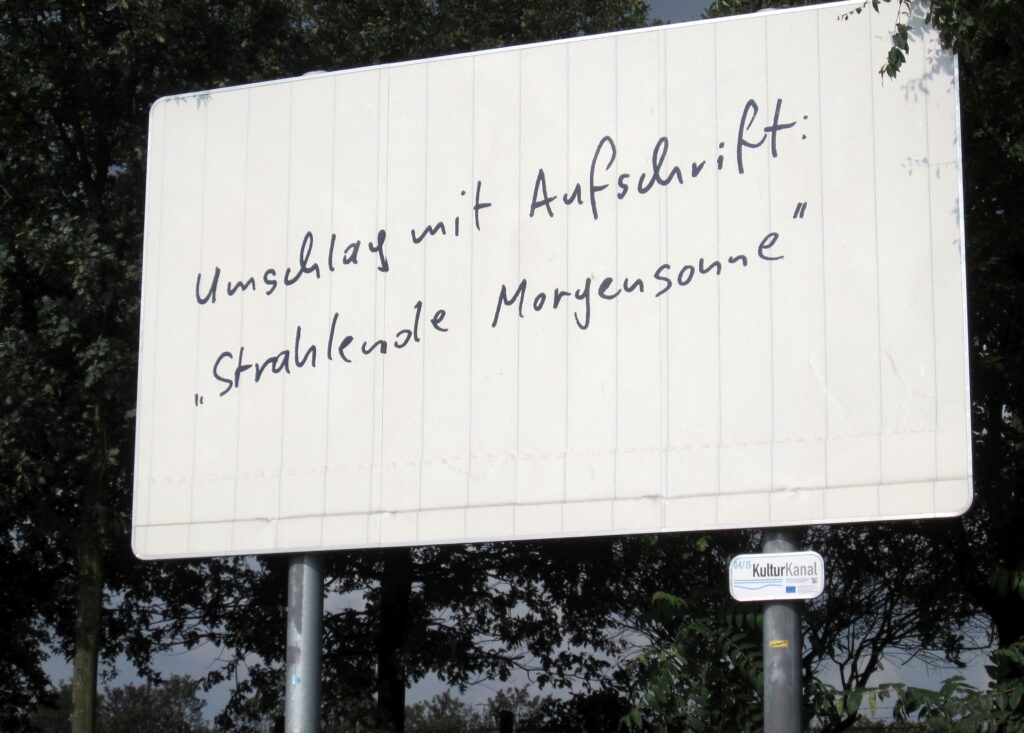 Umschlag mit Aufschrift:
„Strahlende Morgensonne"
04/15 KulturKanal